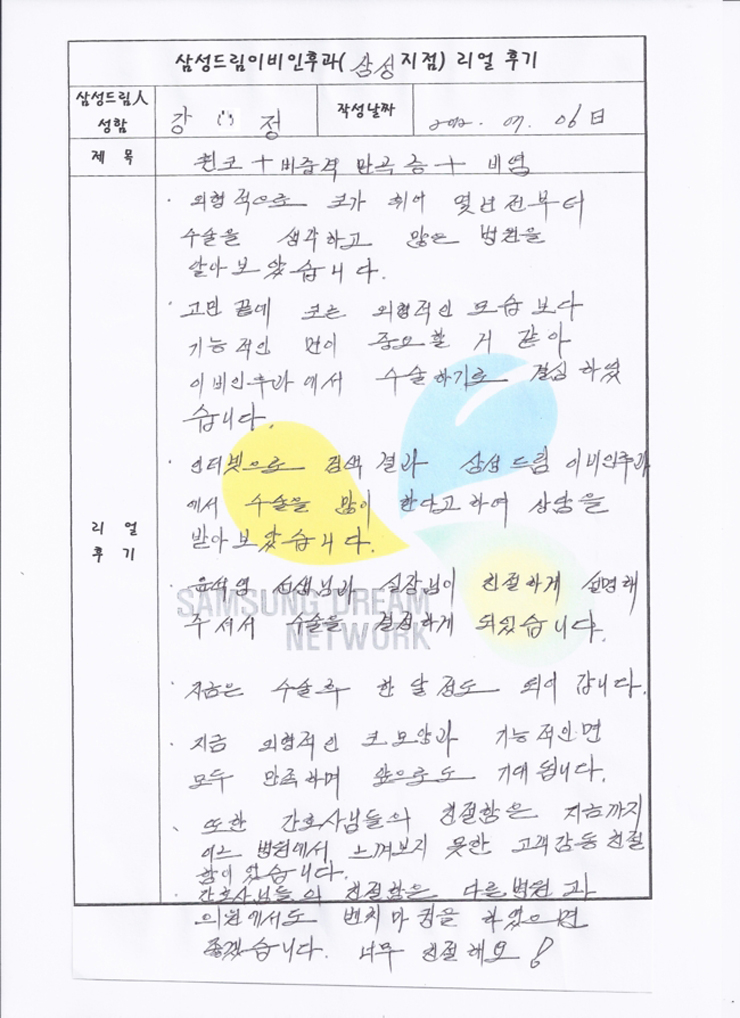 삼성드림이비인후과(삼성지점) 리얼 후기
삼성드림人
성함
강 정
작성날짜
07. 06日
제 목
휜코 + 비중격 만곡증 + 비염
· 외형적으로 코가 휘어 몇년전부터
수술을 생각하고 많은 병원을
알아보았습니다.
· 고민 끝에 코는 외형적인 모습보다
기능적인 면이 중요할 거 같아
이비인후과에서 수술하기로 결심하였
습니다.
· 인터넷으로 검색 결과 삼성드림이비인후과
에서 수술을 많이 한다고하여 상담을
받아보았습니다.
리 얼
후 기
· 윤석영 선생님과 실장님이 친절하게 설명해
주셔서 수술을 결정하게 되었습니다.
SAMSUNG DREAM
NETWORK
· 지금은 수술후 한달정도 되어 갑니다.
· 지금 외형적인 코모양과 기능적인면
모두 만족하며 앞으로도 기대됩니다.
、 또한 간호사님들의 친절함은 지금까지
어느 병원에서 느껴보지 못한 고객감동 친절
함이었습니다.
· 간호사님들의 친절함은 다른병원과
의원에서도 벤치마킹을 하였으면
좋겠습니다. 너무 친절해요!